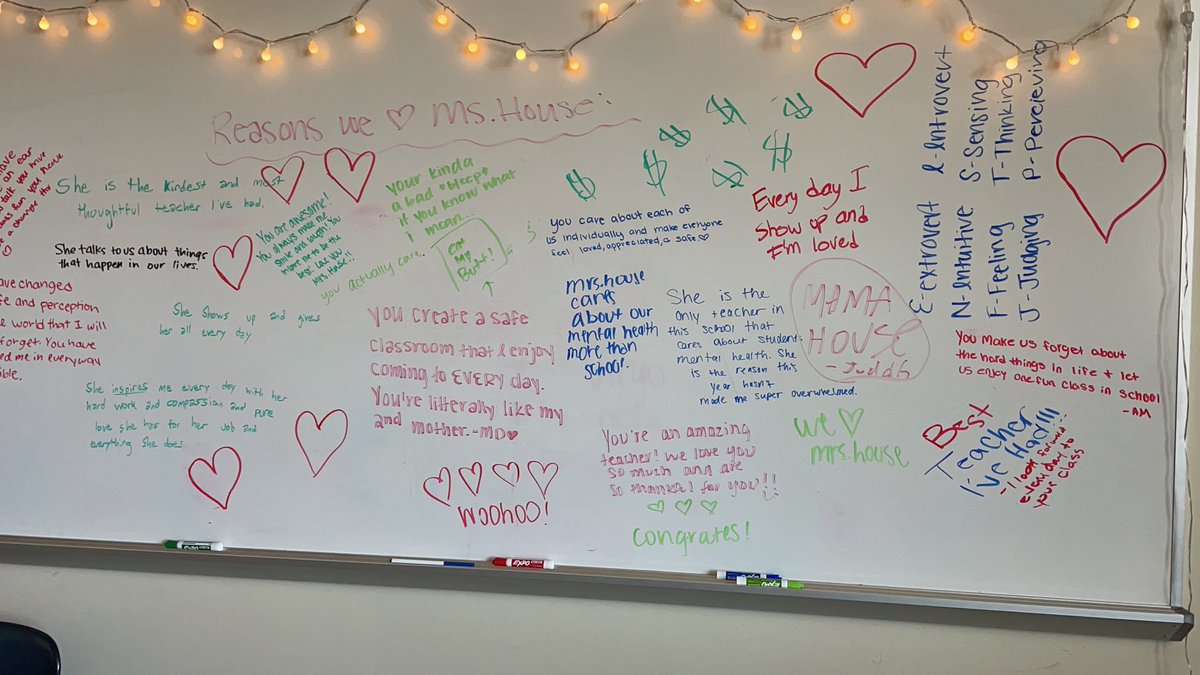 Reasons we ♡ Ms. House:
have
an ear
talk you
She is the kindest and most
thoughtful teacher I've had.
She talks to us about things
that happen in our lives.
have changed
and perception
world that I will
forget. You have
me in everyway
She shows up and gives
her all every day
She inspires me every day with her
hard work and compassion and PURE
love she has for her job and
everything she does
You are awesome!
You always make me
smile and laugh! You
inspire me to be the
best. Love you
Mrs. House!!
your kinda
a bad *bleep*
if you know what
i mean...
eat
my
Butt!
you actually care.
You create a safe
classroom that I enjoy
coming to EVERY day.
You're litterally like my
2nd mother. -MD♥
WOOHOO!
$ $ $ $ $ $ $
you care about each of
us individually and make everyone
feel loved, appreciated, a safe♡
mrs. house
cares
about our
mental health
more than
school.
She is the
only teacher in
this school that
cares about students
mental health. She
is the reason this
year hasnt
made me super overwhelmed.
You're an amazing
teacher! we love you
so much and are
so thankful for you!!
congrates!
Every day I
show up and
I'm loved
MAMA
HOUSE
- Judah
we ♡
mrs. house
E-extrovert I-Introvert
N-Intuitive S-Sensing
F-Feeling T-Thinking
J-Judging P-Percieving
You make us forget about
the hard things in life + let
us enjoy one fun class in school
-AM
Best
Teacher
I've Had!!!
- I look forward
everyday to
your class
EXPO